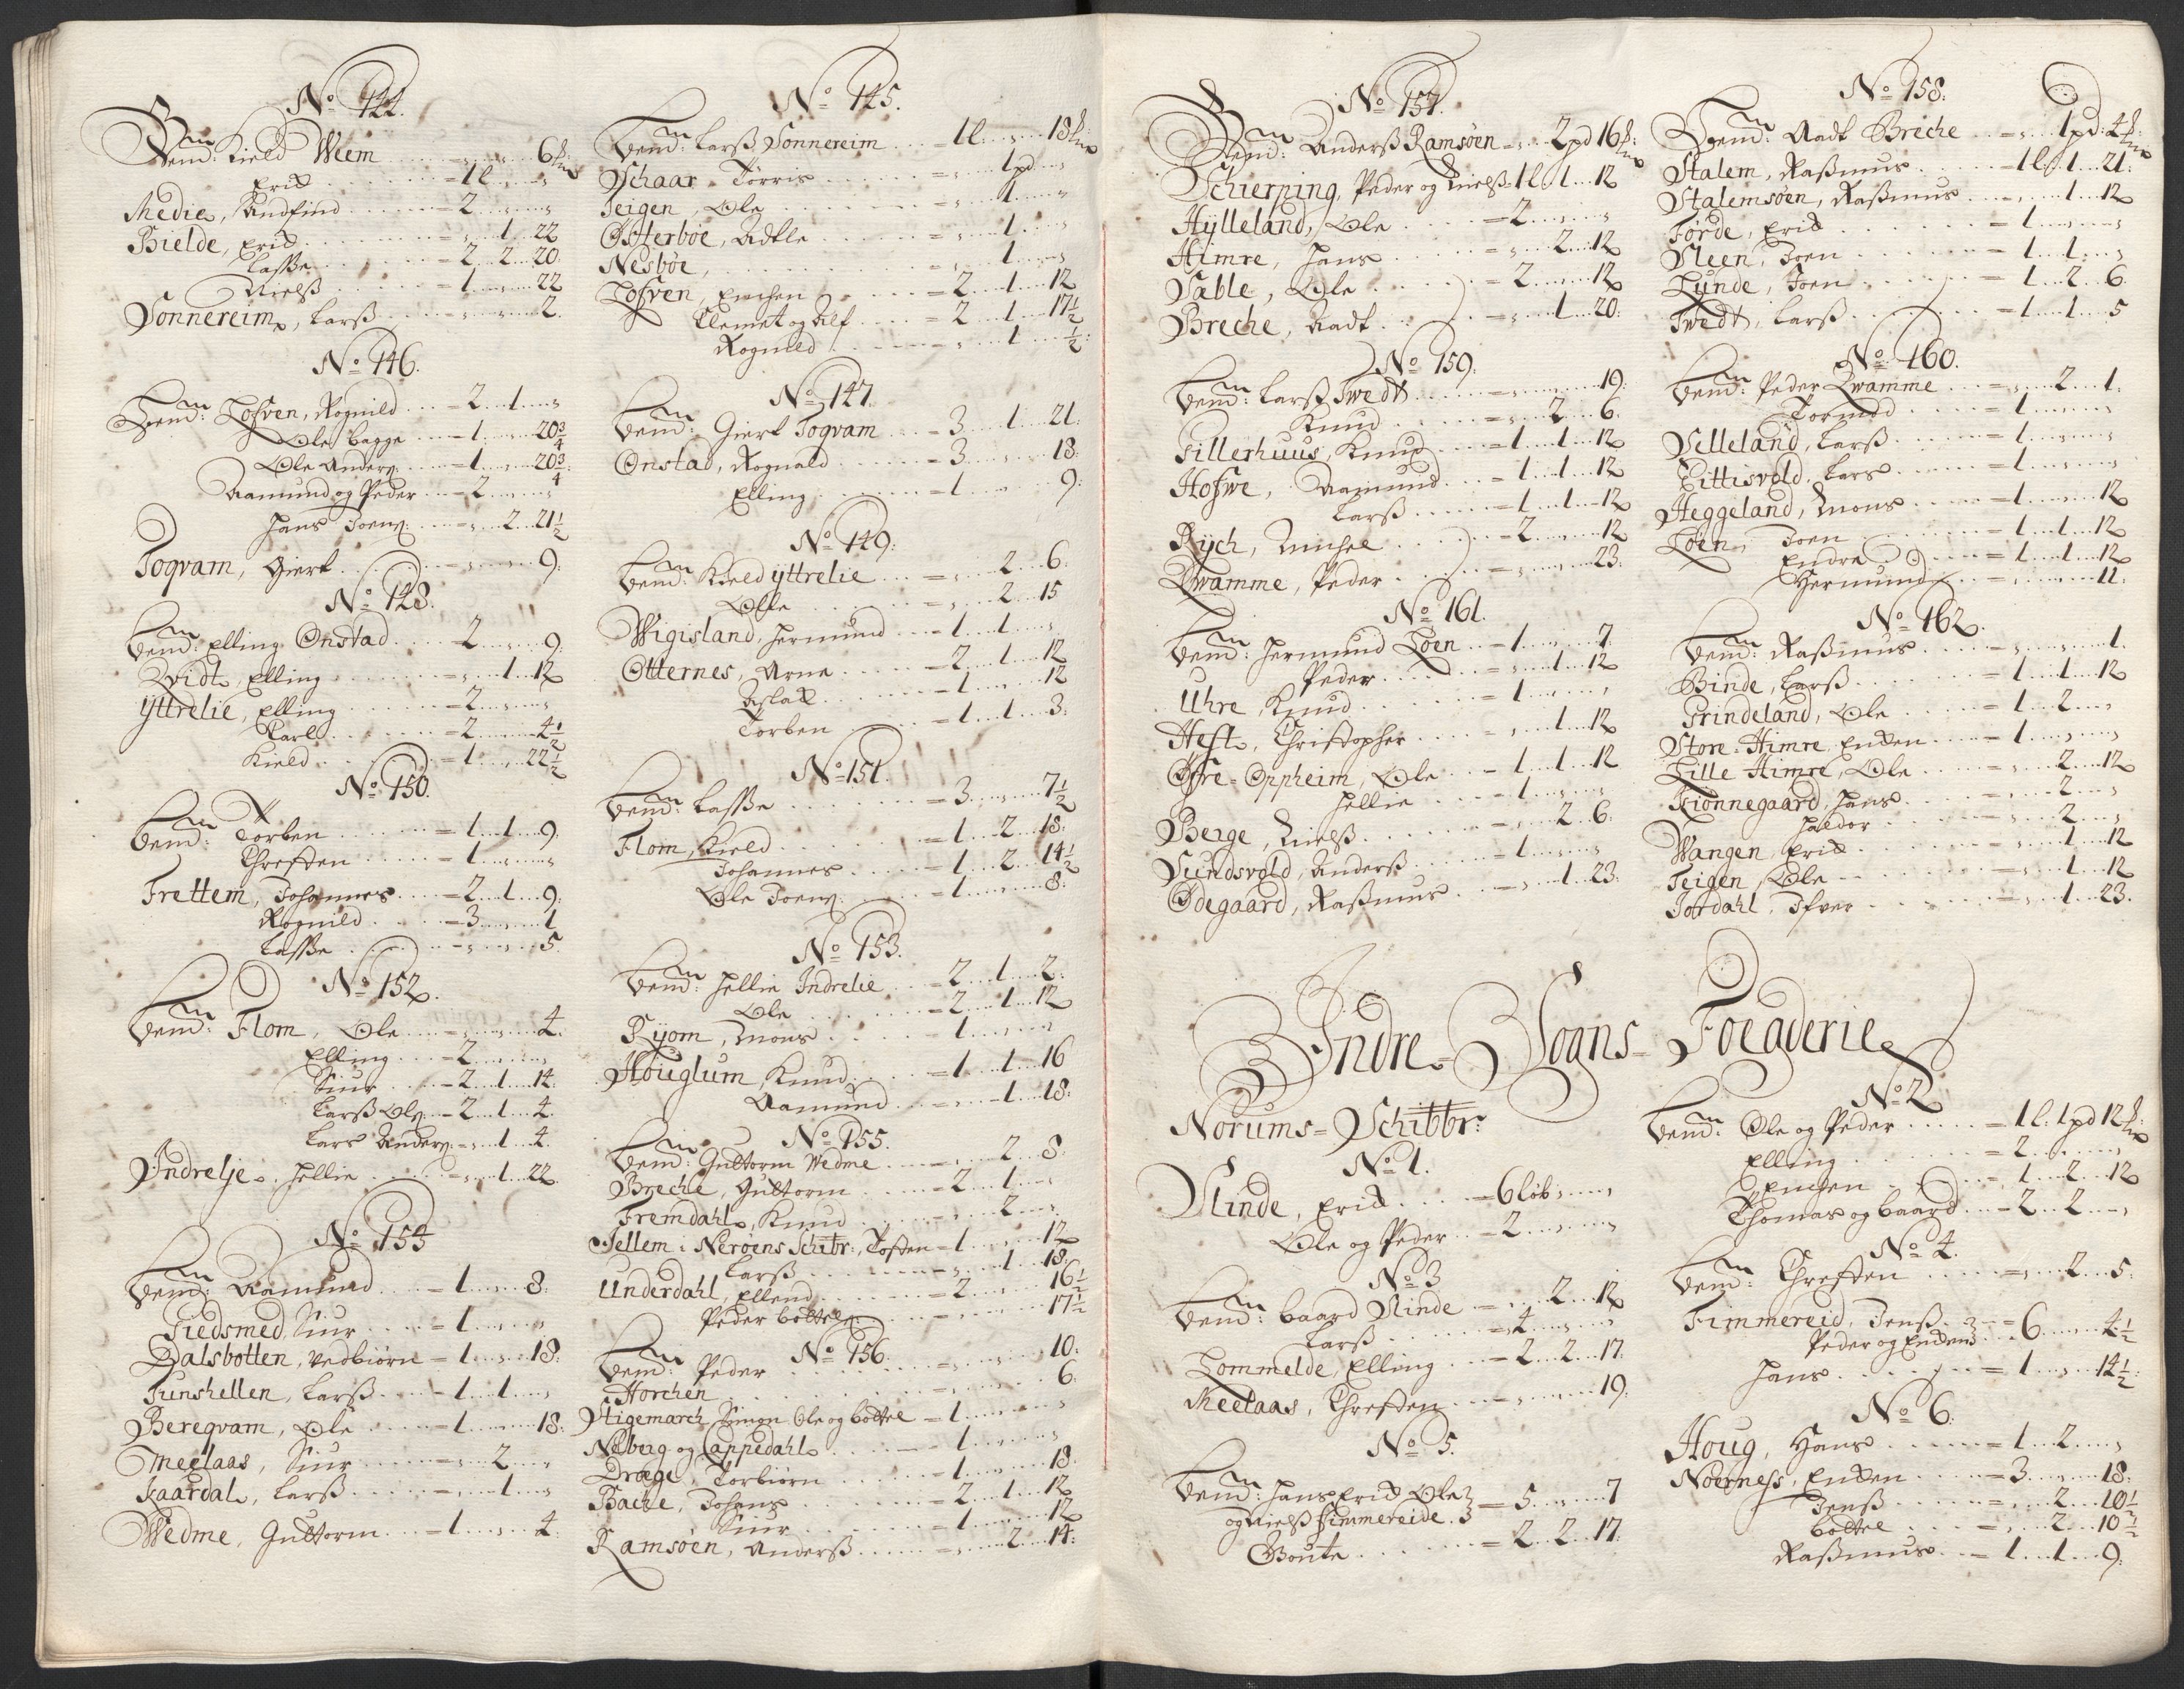 No 144.
Bemd: Kield Wem 6
Erik 1l
Medie, Sandfind 2
Bielde, Erik 1 22
Lasse 2 2 20
Nielß 1 22
Sonnereim, Larß 2
No 146.
Bemd: Lofven, Rognild 2 1
Ole bagge 1 20 3/4
Ole Anders: 1 20 3/4
Aamund og Peder 2
Hans Joens: 2 21 1/2
Toqvam, Giert 9
No 148.
Bemd: Elling Onstad 2 9
Qvidt, Elling 1 12
Yttrelie, Elling 2
Carl 2 4 1/2
Kield 1 22 1/2
No 150.
Bemd: Torben 1 1 9
Chresten 1
Frettem, Johannes 2 1 9
Rognild 3 1
Lasse 5
No 152.
Bemd: Flom, Ole 4
Elling 2
Siur 2 1 14
Larß Ols: 2 1 4
Lars Anders: 1 4
Indrelje, Hellie 1 22
No 154
Bemd: Aamund 1 8
Tiedsmed, Siur 1
Dalsbotten, Vedbiørn 1 18
Tunshellen, Larß 1 1
Bereqvam, Ole 1 18
Meelaas, Siur 2
Kaardal, Larß 1
Wedme, Guttorm 1 4
No 145.
Bemd: Larß Sonnereim 1l 18
Schaar, Torris 1pd
Teigen, Ole 1
Østerboe, Adtle 1
Nesbøe, 1
Lofven, Enchen 2 1 12
Clemet og Alf 2 1 17 1/2
Rognild 1 1/2
No 147.
Bemd: Giert Toqvam 3 1 21
Onstad, Rognald 3 18
Elling 1 9
No 149.
Bemd: Kield Yttrelie 2 6
Olle 2 15
Wigisland, Hermund 1 1
Otternes, Arne 2 1 12
Aslak 1 12
Torben 1 1 3
No 151.
Bemd: Lasse 3 7 1/2
Flom, Kield 1 2 18
Johannes 1 2 14 1/2
Ole Joens: 1 8
No 153.
Bemd: Hellie Indrelie 2 1 2
Ole 2 1 12
Ryom, Mons 1
Houglum, Knud 1 1 16
Aamund 1 18
No 155.
Bemd: Guttorm Wedme 2 8
Breche, Guttorm 2 1
Fremdahl, Knud 2
Jellem i Nerøens Schibr:, Tosten 1 12
Larß 1 18
Underdahl, Ellend 2 16 1/2
Peder bottels: 17 1/2
No 156
Bemd: Peder 10
Horchen 6
Stigemarch, Simon Ole og bottel 1
Neberg og Cappedahl 1
Drage, Torbiørn 1 18
Bache, Johans 2 1 12
Siur 1 12
Ramsøen, Anderß 2 14
No 157.
Bemd: Anderß Ramsøen 2pd 16
Schierping, Peder og Nielß 1l 1 12
Hylleland, Ole 2
Himre, Hans 2 12
Sable, Ole 2 12
Breche, Aadt 1 20
No 159.
Bemd: Larß Twedt 19
Knud 2 6
Fillerhuus, Knud 1 1 12
Hofwe, Aamund 1 1 12
Larß 1 1 12
Rych, Michel 2 12
Qwamme, Peder 23
No 161.
Bemd: Hermund Loen 1 7
Peder 1 12
Uhre, Knud 1
Heft, Christopher 1 12
Øfre-Oppheim, Ole 1 1 12
Hellie 1
Berge, Nielß 2 6
Sundsvold, Anderß 1
Ødegaard, Raßmus 1 23
No 158.
Bemd: Aadt Breche 1pd 4
Stalem, Raßmus 1l 1 21
Stalemsøen, Raßmus 1 12
Førde, Erik 1
Steen, Joen 1 1
Lunde, Joen 1 2 6
Twedt, Larß 1 1 5
No 160.
Bemd: Peder Qwamme 2 1
Tormod 1
Selleland, Larß 1
Tittisvold, Lars 1
Heggeland, Mons 1 12
Loen, Joen 1 1 12
Endre 1 1 12
Hermund 11
No 162.
Bemd: Raßmus 1
Binde, Larß 1 1 12
Grindeland, Ole 1 2
Store-Himre, Enken 1
Lille Himre, Ole 2 12
Kionnegaard, Hans 2
Haldor 2
Wangen, Erik 1 12
Teigen, Ole 1 12
Jordahl, Ifver 1 23
Indre-Sogns-Foegderie
Norums-Schibbr:
No 1.
Slinde, Erik 6 løb
Ole og Peder 2
No 3
Bemd: baard Slinde 2 12
Larß 4
Lommelde, Elling 2 2 17
Meelaas, Chresten 19
No 5.
Bemd: Hans Erik Ole
og Nielß Fimmereide 5 7
Goute 2 2 17
No 2
Bemd: Ole og Peder 1l: 1pd 12
Elling 2
Enchen 1 2 12
Thomas og baard 2 2
No 4.
Bemd: Chresten 2 5
Fimmereid, Jenß
Peder og Enken 6 4 1/2
Hans 1 14 1/2
No 6.
Houg, Hans 1 2
Noerness, Enken 3 18
Jenß 2 10 1/2
bottel 2 10 1/2
Raßmus 1 1 9